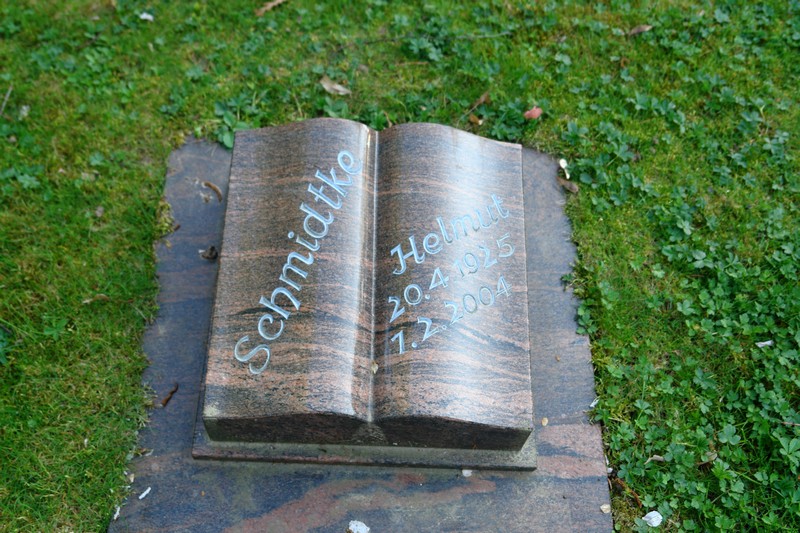 Schmidtke
Helmut
20.4.1925
7.2.2004